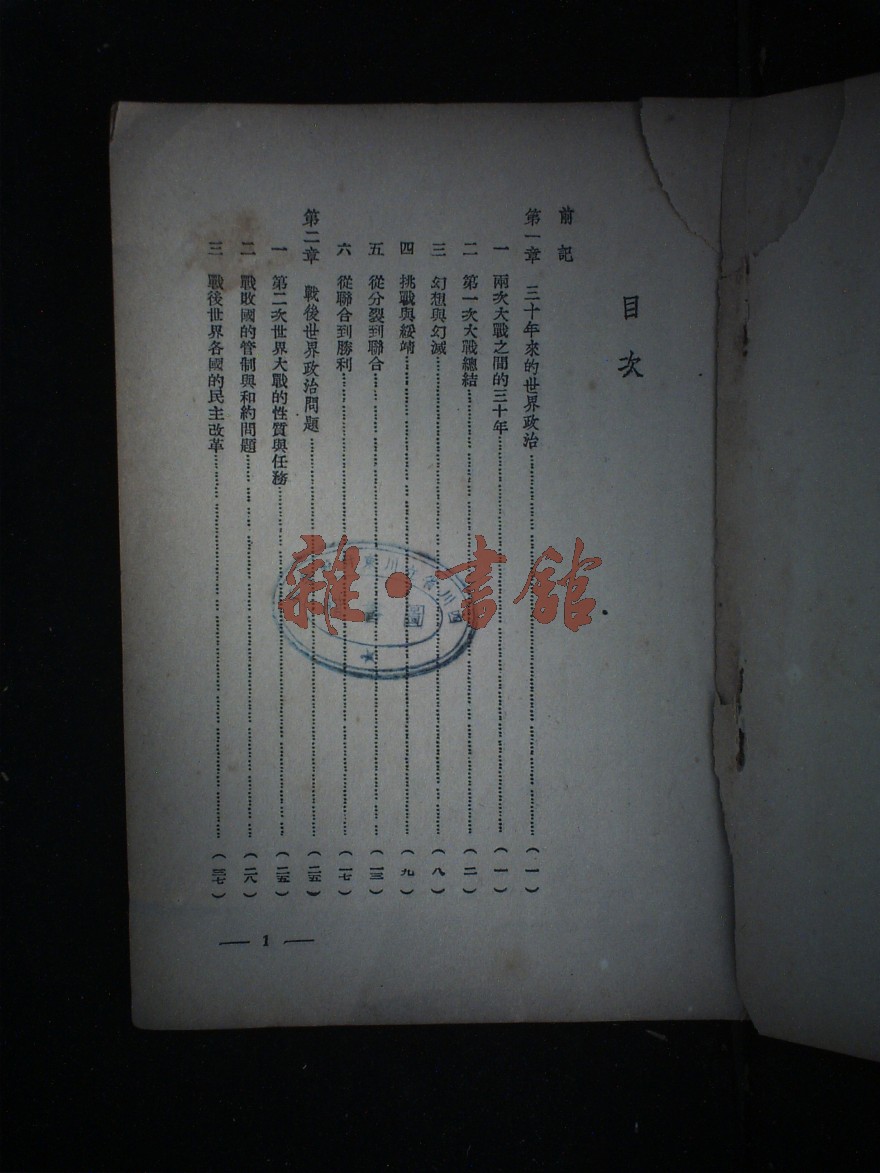 目次
前記
第一章 三十年來的世界政治……(一)
一 兩次大戰之間的三十年……(一)
二 第一次大戰總結……(二)
三 幻想與幻滅……(八)
四 挑戰與綏靖……(九)
五 從分裂到聯合……(一三)
六 從聯合到勝利……(一七)
第二章 戰後世界政治問題……(二五)
一 第二次世界大戰的性質與任務……(二五)
二 戰敗國的管制與和約問題……(二八)
三 戰後世界各國的民主改革……(三七)
— 1 —
雜·書館